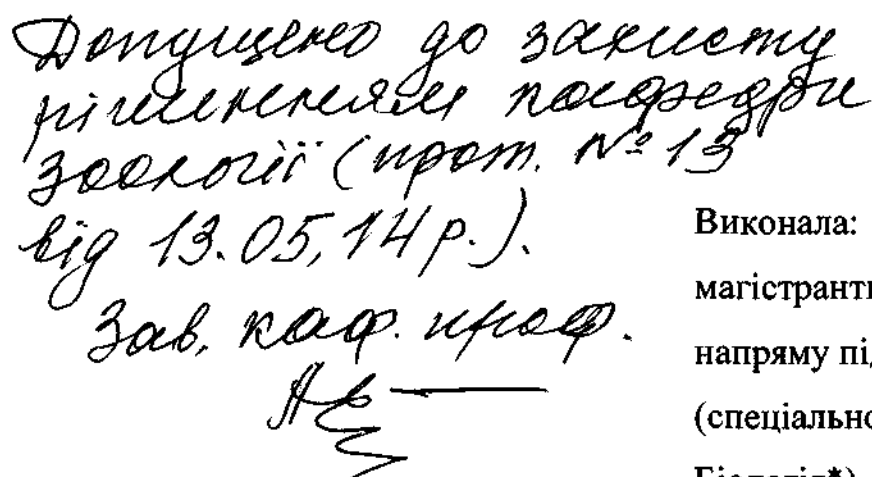 Допущено до захисту
рішенням кафедри
зоології (прот. № 13
від 13.05,14 р.).
Зав. каф. проф.
Виконала:
магістрант
напряму під
(спеціально
Біологія*)